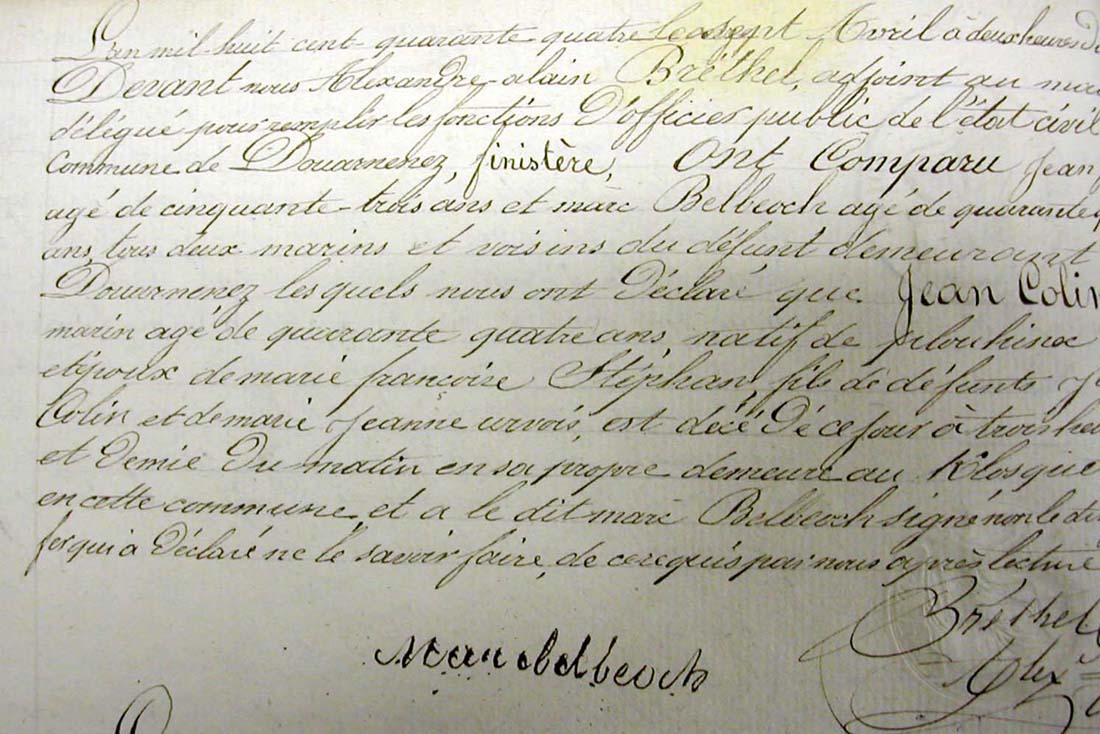 L'an mil huit cent quarante quatre le sept Avril à deux heures d
Devant nous Alexandre-alain Bréthel, adjoint au ma
délégué pour remplir les fonctions D'officier public de l'état civil
commune de Douarnenez, finistère, Ont Comparu Jean
agé de cinquante-trois ans et marc Belbeoch agé de quarante
ans, tous deux marins et voisins du défunt demeurant
Douarnenez les quels nous ont Déclaré que Jean Colin
marin agé de quarante quatre ans, natif de plouhinec
et époux de marie françoise Stéphan, fils de défunts J
Colin et de marie Jeanne urvois, est décé Dé ce jour à trois heu
et Demie Du matin en sa propre demeure au
en cette commune, et a le dit marc Belbeoch signé non le di
qui a Déclaré ne le savoir faire, de ce requis par nous après lecture
Bréthel
Alex
marc belbeoch